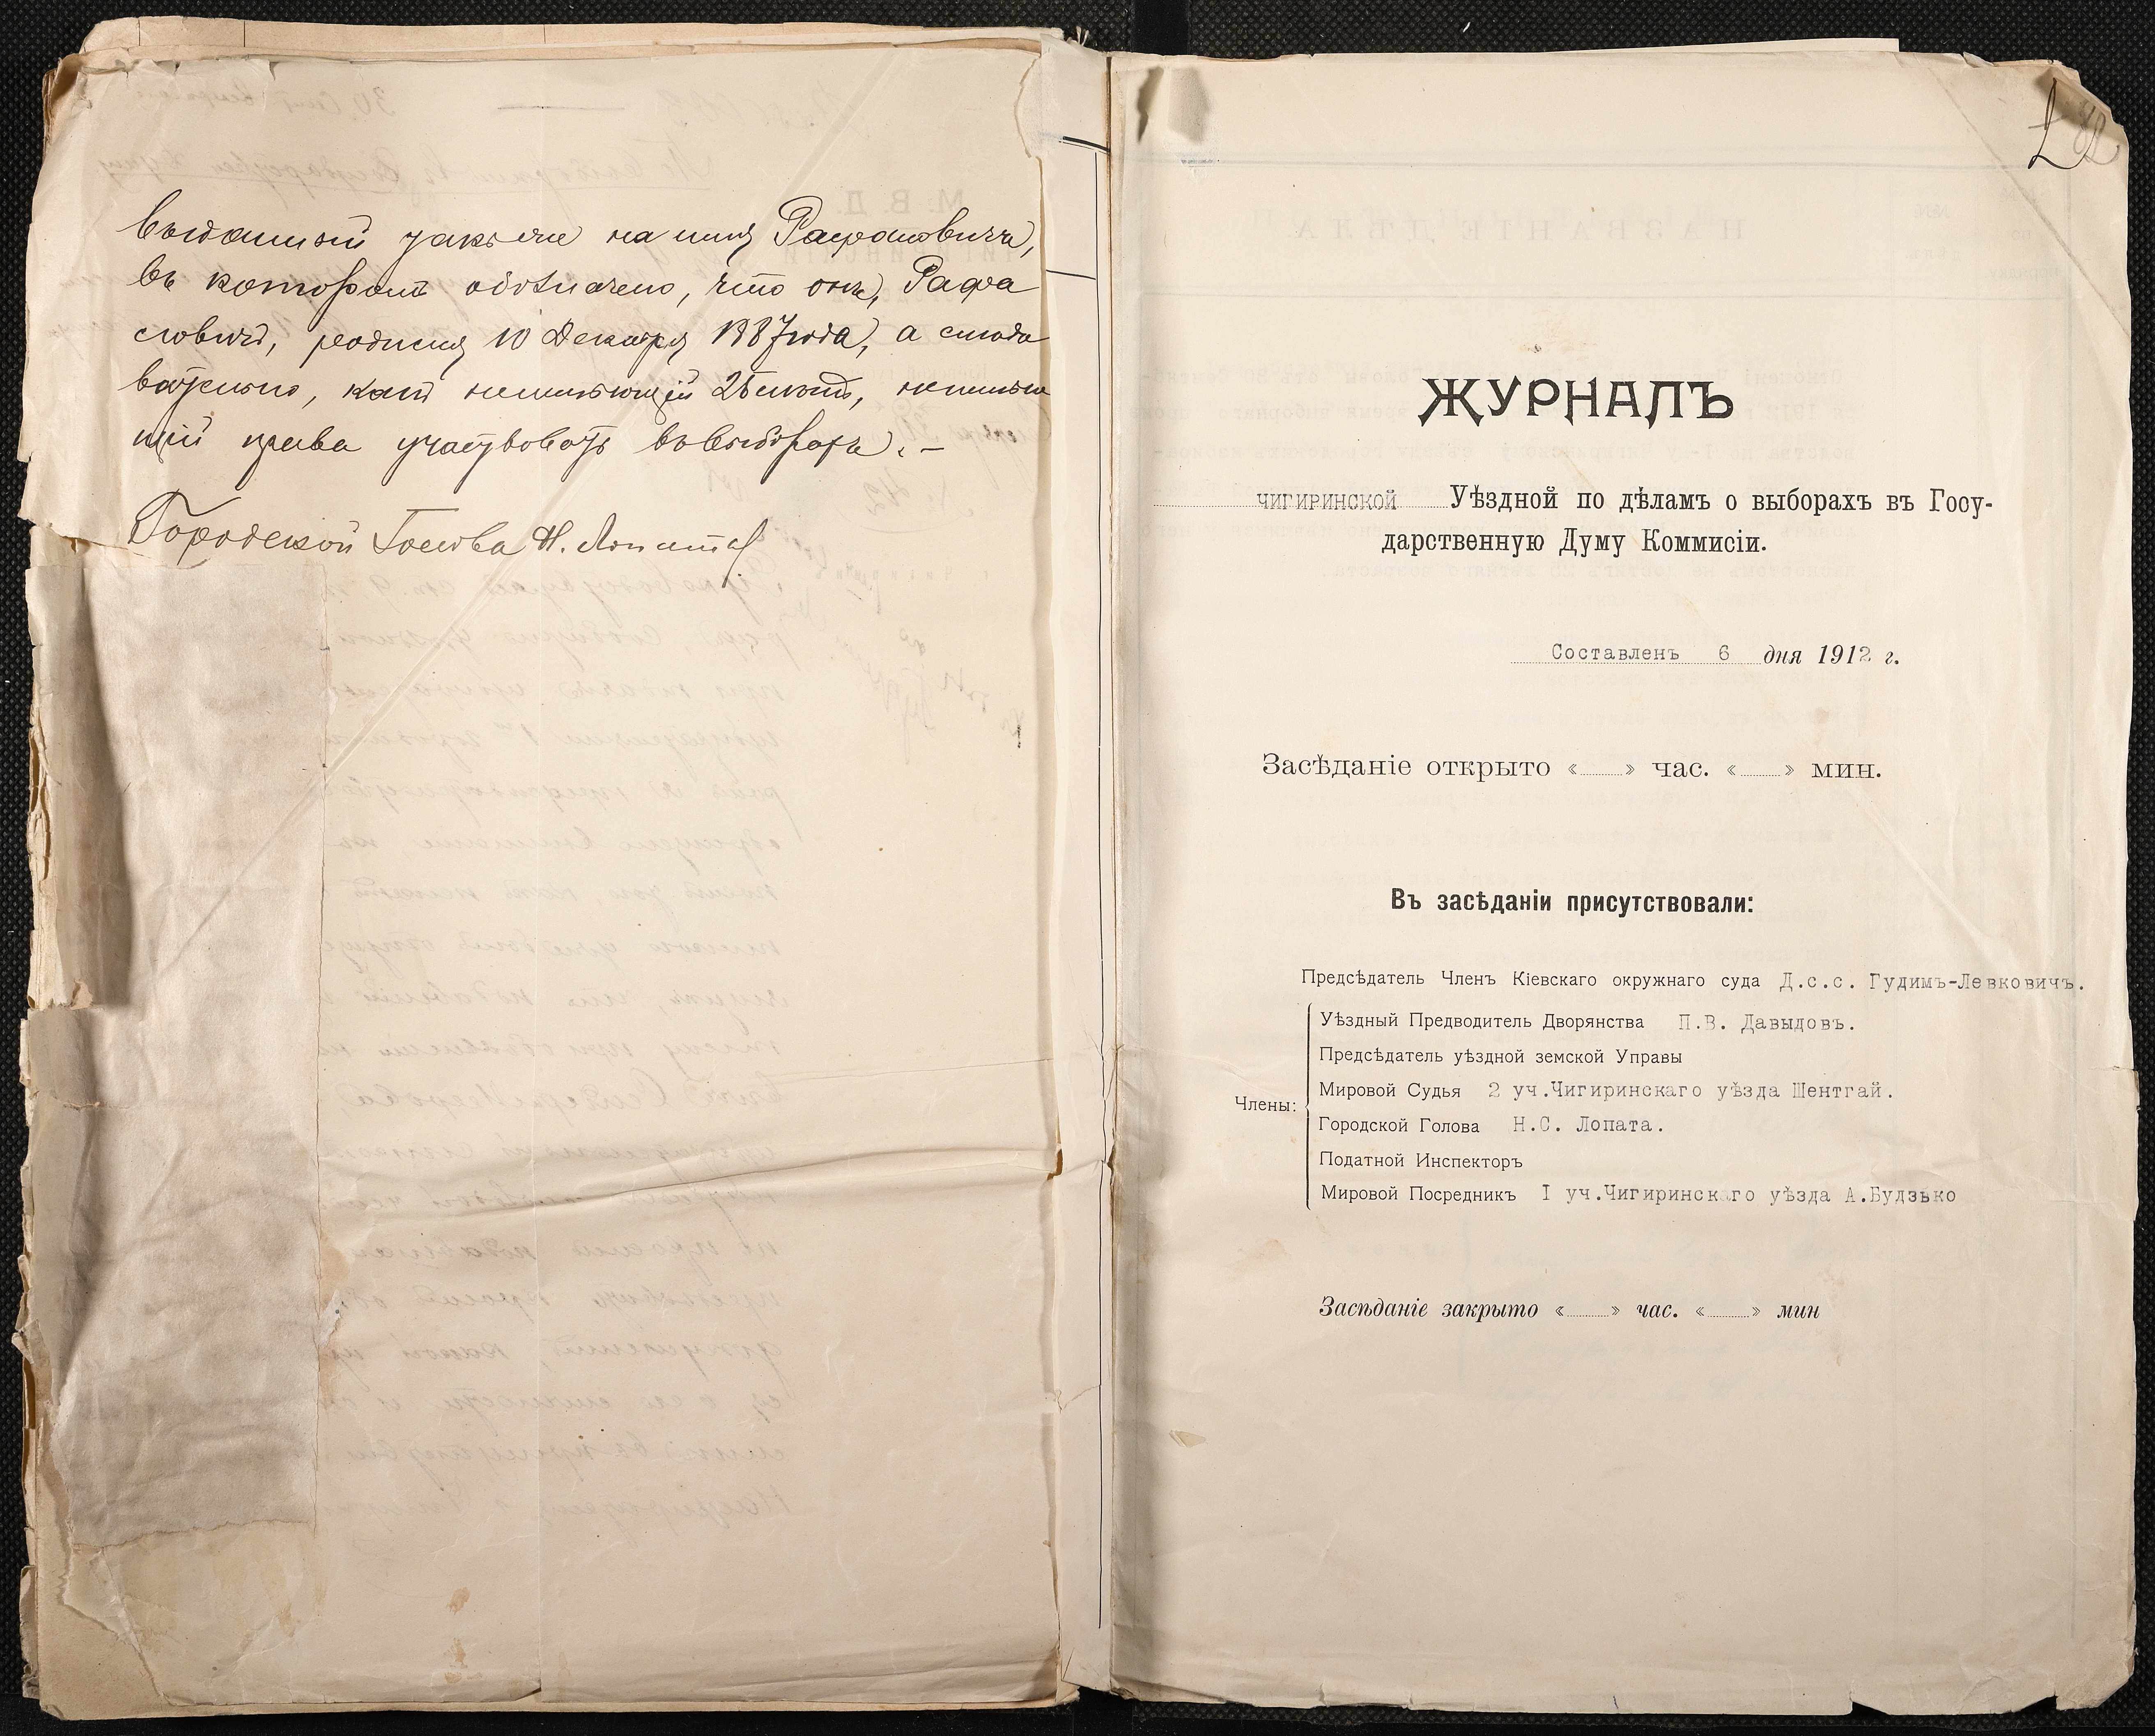 выданный также на имя Рафаловича,
въ которомъ обозначено, что онъ, Рафа
ловичъ, родился 10 Декабря 1887 года, а слѣдо
вательно, какъ неимѣющій 25 лѣтъ, неимѣю
щій права участвовать въ выборахъ. —
Городской Голова Н. Лопата
ЖУРНАЛЪ
ЧИГИРИНСКОЙ Уѣздной по дѣламъ о выборахъ въ Госу-
дарственную Думу Коммисіи.
Составленъ 6 дня 1912 г.
Засѣданіе открыто « » час. « » мин.
Въ засѣданіи присутствовали:
Предсѣдатель Членъ Кіевскаго окружнаго суда Д.с.с. Гудимъ-Левковичъ.
Члены:
Уѣздный Предводитель Дворянства П.В. Давыдовъ.
Предсѣдатель уѣздной земской Управы
Мировой Судья 2 уч.Чигиринскаго уѣзда Шентгай.
Городской Голова Н.С. Лопата.
Податной Инспекторъ
Мировой Посредникъ I уч.Чигиринскаго уѣзда А.Будзько
Засѣданіе закрыто « » час. « » мин